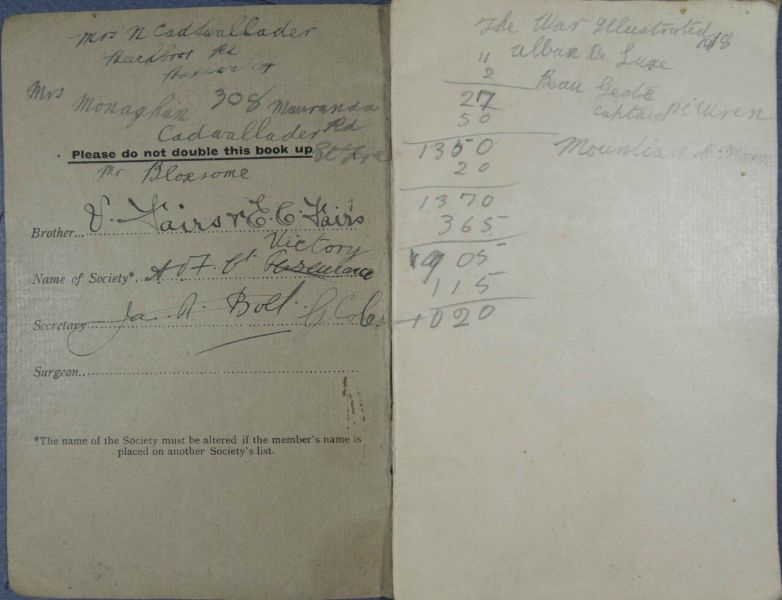 Mrs N Cadwallader
Beechboro Rd
Mrs Monaghan 308 Mauranda
Cadwallader Rd
Please do not double this book up
Mr Bloxsome
Brother... V. Fairs & E. C Fairs
Victory
Name of Society*. A O F Ct
Secretary Ja. A. Bolt. G Coles
Surgeon
*The name of the Society must be altered if the member's name is
placed on another Society's list.
The War Illustrated
11 Album De Luxe
2 Beau Geste
27 Captain P C Wren
50
1350 Mountian of
20
1370
365
905
115
1020